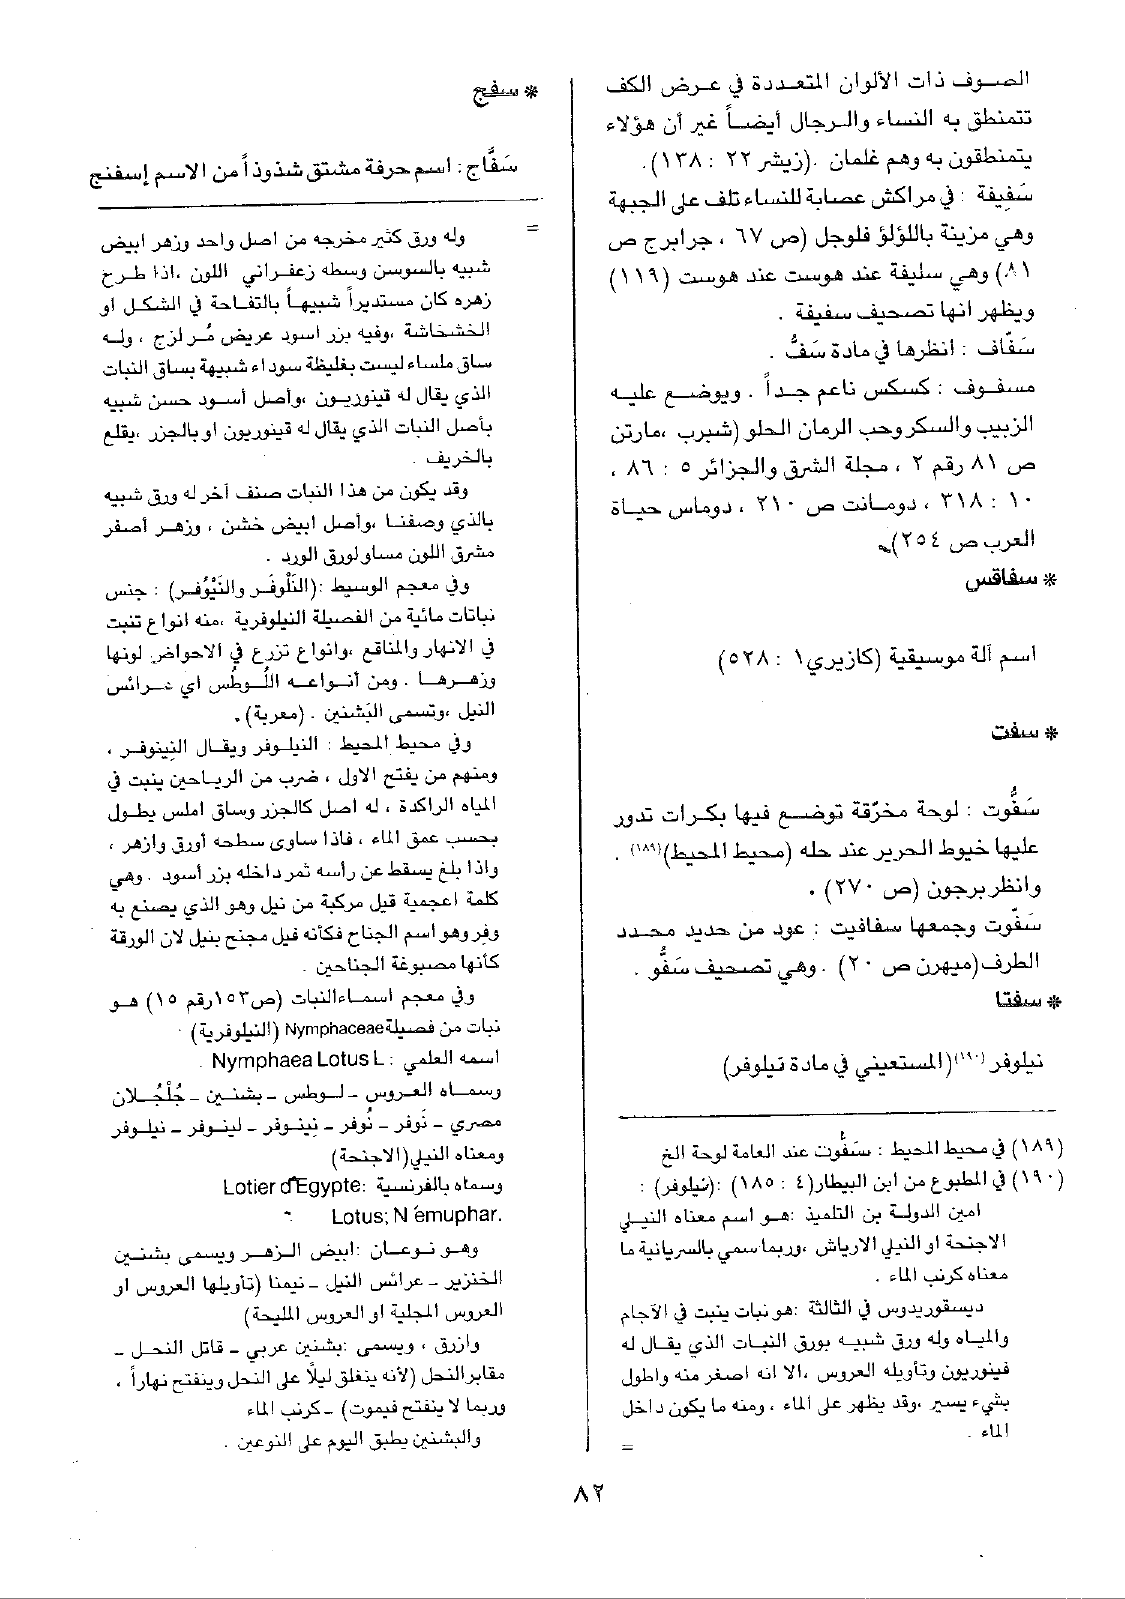 الصوف ذات الألوان المتعددة في عرض الكف
تتمنطق به النساء والرجال أيضاً غير أن هؤلاء
يتمنطقون به وهم غلمان .(زيشر ٢٢ : ١٣٨).
سَفِيفة : في مراكش عصابة للنساء تلف على الجبهة
وهي مزينة باللؤلؤ فلوجل (ص ٦٧ ، جرابرج ص
٨١) وهي سليفة عند هوست عند هوست (١١٩)
ويظهر انها تصحيف سفيفة .
سَفّاف : انظرها في مادة سَفُّ .
مسفوف : كسكس ناعم جداً . ويوضع عليه
الزبيب والسكر وحب الرمان الحلو (شيرب ،مارتن
ص ٨١ رقم ٢ ، مجلة الشرق والجزائر ٥ : ٨٦ ،
١٠ : ٣١٨ ، دومانت ص ٢١٠ ، دوماس حياة
العرب ص ٢٥٤).
* سفاقس
اسم آلة موسيقية (كازيري١ : ٥٢٨)
* سفت
سَفُّوت : لوحة مخرّقة توضع فيها بكرات تدور
عليها خيوط الحرير عند حله (محيط المحيط)(١٨٩) .
وانظر برجون (ص ٢٧٠) .
سَفّوت وجمعها سفافيت : عود من حديد محدد
الطرف(ميهرن ص ٢٠) . وهي تصحيف سَفُّو .
* سفتا
نيلوفر (١٩٠)(المستعيني في مادة نيلوفر)
(١٨٩) في محيط المحيط : سَفُّوت عند العامة لوحة الخ
(١٩٠) في المطبوع من ابن البيطار(٤ : ١٨٥) :(نيلوفر) :
امين الدولة بن التلميذ :هو اسم معناه النيلي
الاجنحة او النيلي الارياش ،وربما سمي بالسريانية ما
معناه كرنب الماء .
ديسقوريدوس في الثالثة :هو نبات ينبت في الآجام
والمياه وله ورق شبيه بورق النبات الذي يقال له
فينوريون وتأويله العروس ،الا انه اصغر منه واطول
بشيء يسير ،وقد يظهر على الماء ، ومنه ما يكون داخل
الماء .
=
* سفج
سَفَّاج : اسم حرفة مشتق شذوذاً من الاسم إسفنج
=
وله ورق كثير مخرجه من اصل واحد وزهر ابيض
شبيه بالسوسن وسطه زعفراني اللون ،اذا طرح
زهره كان مستديراً شبيهاً بالتفاحة في الشكل او
الخشخاشة ،وفيه بزر اسود عريض مُر لزج ، وله
ساق ملساء ليست بغليظة سوداء شبيهة بساق النبات
الذي يقال له قينوريون ،وأصل أسود حسن شبيه
بأصل النبات الذي يقال له قينوريون او بالجزر ،يقلع
بالخريف .
وقد يكون من هذا النبات صنف آخر له ورق شبيه
بالذي وصفنا ،وأصل ابيض خشن ، وزهر أصفر
مشرق اللون مساو لورق الورد .
وفي معجم الوسيط :(النَلُوفَر والنَيْوُفَر) : جنس
نباتات مائية من الفصيلة النيلوفرية ،منه انواع تنبت
في الانهار والمناقع ،وانواع تزرع في الأحواض لونها
وزهرها . ومن أنواعه اللُوطُس اي عرائس
النيل ،وتسمى البَشنين . (معربة).
وفي محيط المحيط : النيلوفر ويقال النِينوفر ،
ومنهم من يفتح الاول ، ضرب من الرياحين ينبت في
المياه الراكدة ، له اصل كالجزر وساق املس يطول
بحسب عمق الماء ، فاذا ساوى سطحه أورق وازهر ،
واذا بلغ يسقط عن رأسه ثمر داخله بزر أسود . وهي
كلمة اعجمية قيل مركبة من نيل وهو الذي يصنع به
وفر وهو اسم الجناح فكأنه قيل مجنح بنيل لان الورقة
كأنها مصبوغة الجناحين .
وفي معجم اسماء النبات (ص١٥٣رقم ١٥) هو
نبات من فصيلة Nymphaceae (النيلوفرية)
اسمه العلمي : Nymphaea Lotus L .
وسماه العروس ـ لوطس ـ بشنين ـ جُلْجُلان
مصري ـ نَوفر ـ نُوفر ـ نِينوفر ـ لينوفر ـ نيلوفر
ومعناه النيلي(الاجنحة)
وسماه بالفرنسية :Lotier d'Egypte
Lotus; N émuphar.
وهو نوعان :ابيض الزهر ويسمى بشنين
الخنزير ـ عرائس النيل ـ نيمنا (تأويلها العروس او
العروس المجلية او العروس المليحة)
وازرق ، ويسمى :بشنين عربي ـ قاتل النحل ـ
مقابر النحل (لأنه ينغلق ليلاً على النحل وينفتح نهاراً ،
وربما لا ينفتح فيموت) ـ كرنب الماء
والبشنين يطبق اليوم على النوعين .
٨٢